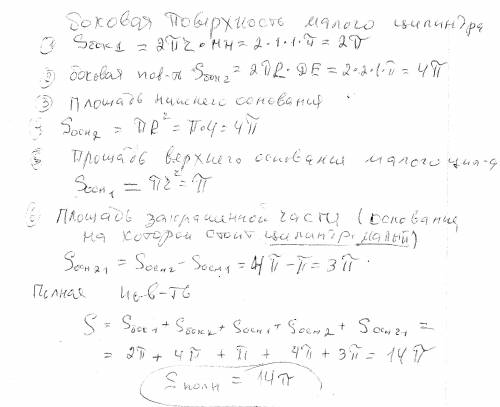 Боковая поверхность малого цилиндра
① Sбок1 = 2πr · HH = 2·1·1·π = 2π
② боковая пов-п Sбок2 = 2πR · DE = 2·2·1·π = 4π
③ Площадь нижнего основания
Sосн2 = πR² = π·4 = 4π
Площадь верхнего основания малого цил-а
Sосн1 = πr² = π
Площадь закрашенной части (основания,
на которой стоит цилиндр малый)
Sосн21 = Sосн2 - Sосн1 = 4π - π = 3π.
Полная
S = Sбок1 + Sбок2 + Sосн1 + Sосн2 + Sосн21 =
= 2π + 4π + π + 4π + 3π = 14π
Sполн = 14π